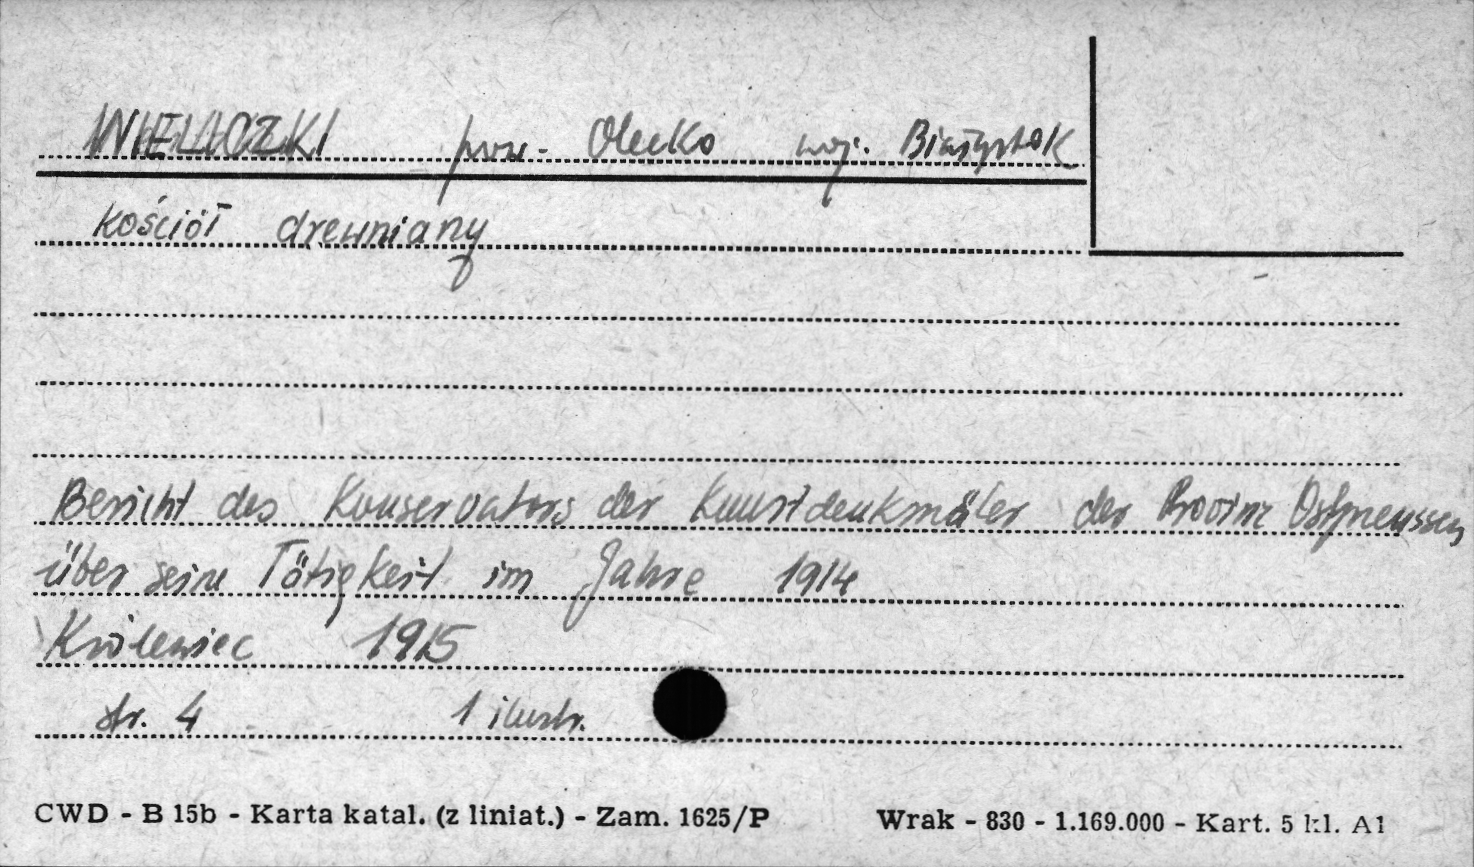 WIELICZKI pow. Olecko woj. Białystok
kościół drewniany
Bericht des Konservators der Kunstdenkmäler der Provinz Ostpreussen
über seine Tätigkeit im Jahre 1914
Królewiec 1915
str. 4 1 ilustr.
CWD - B 15b - Karta katal. (z liniat.) - Zam. 1625/P Wrak - 830 - 1.169.000 - Kart. 5 kl. A1